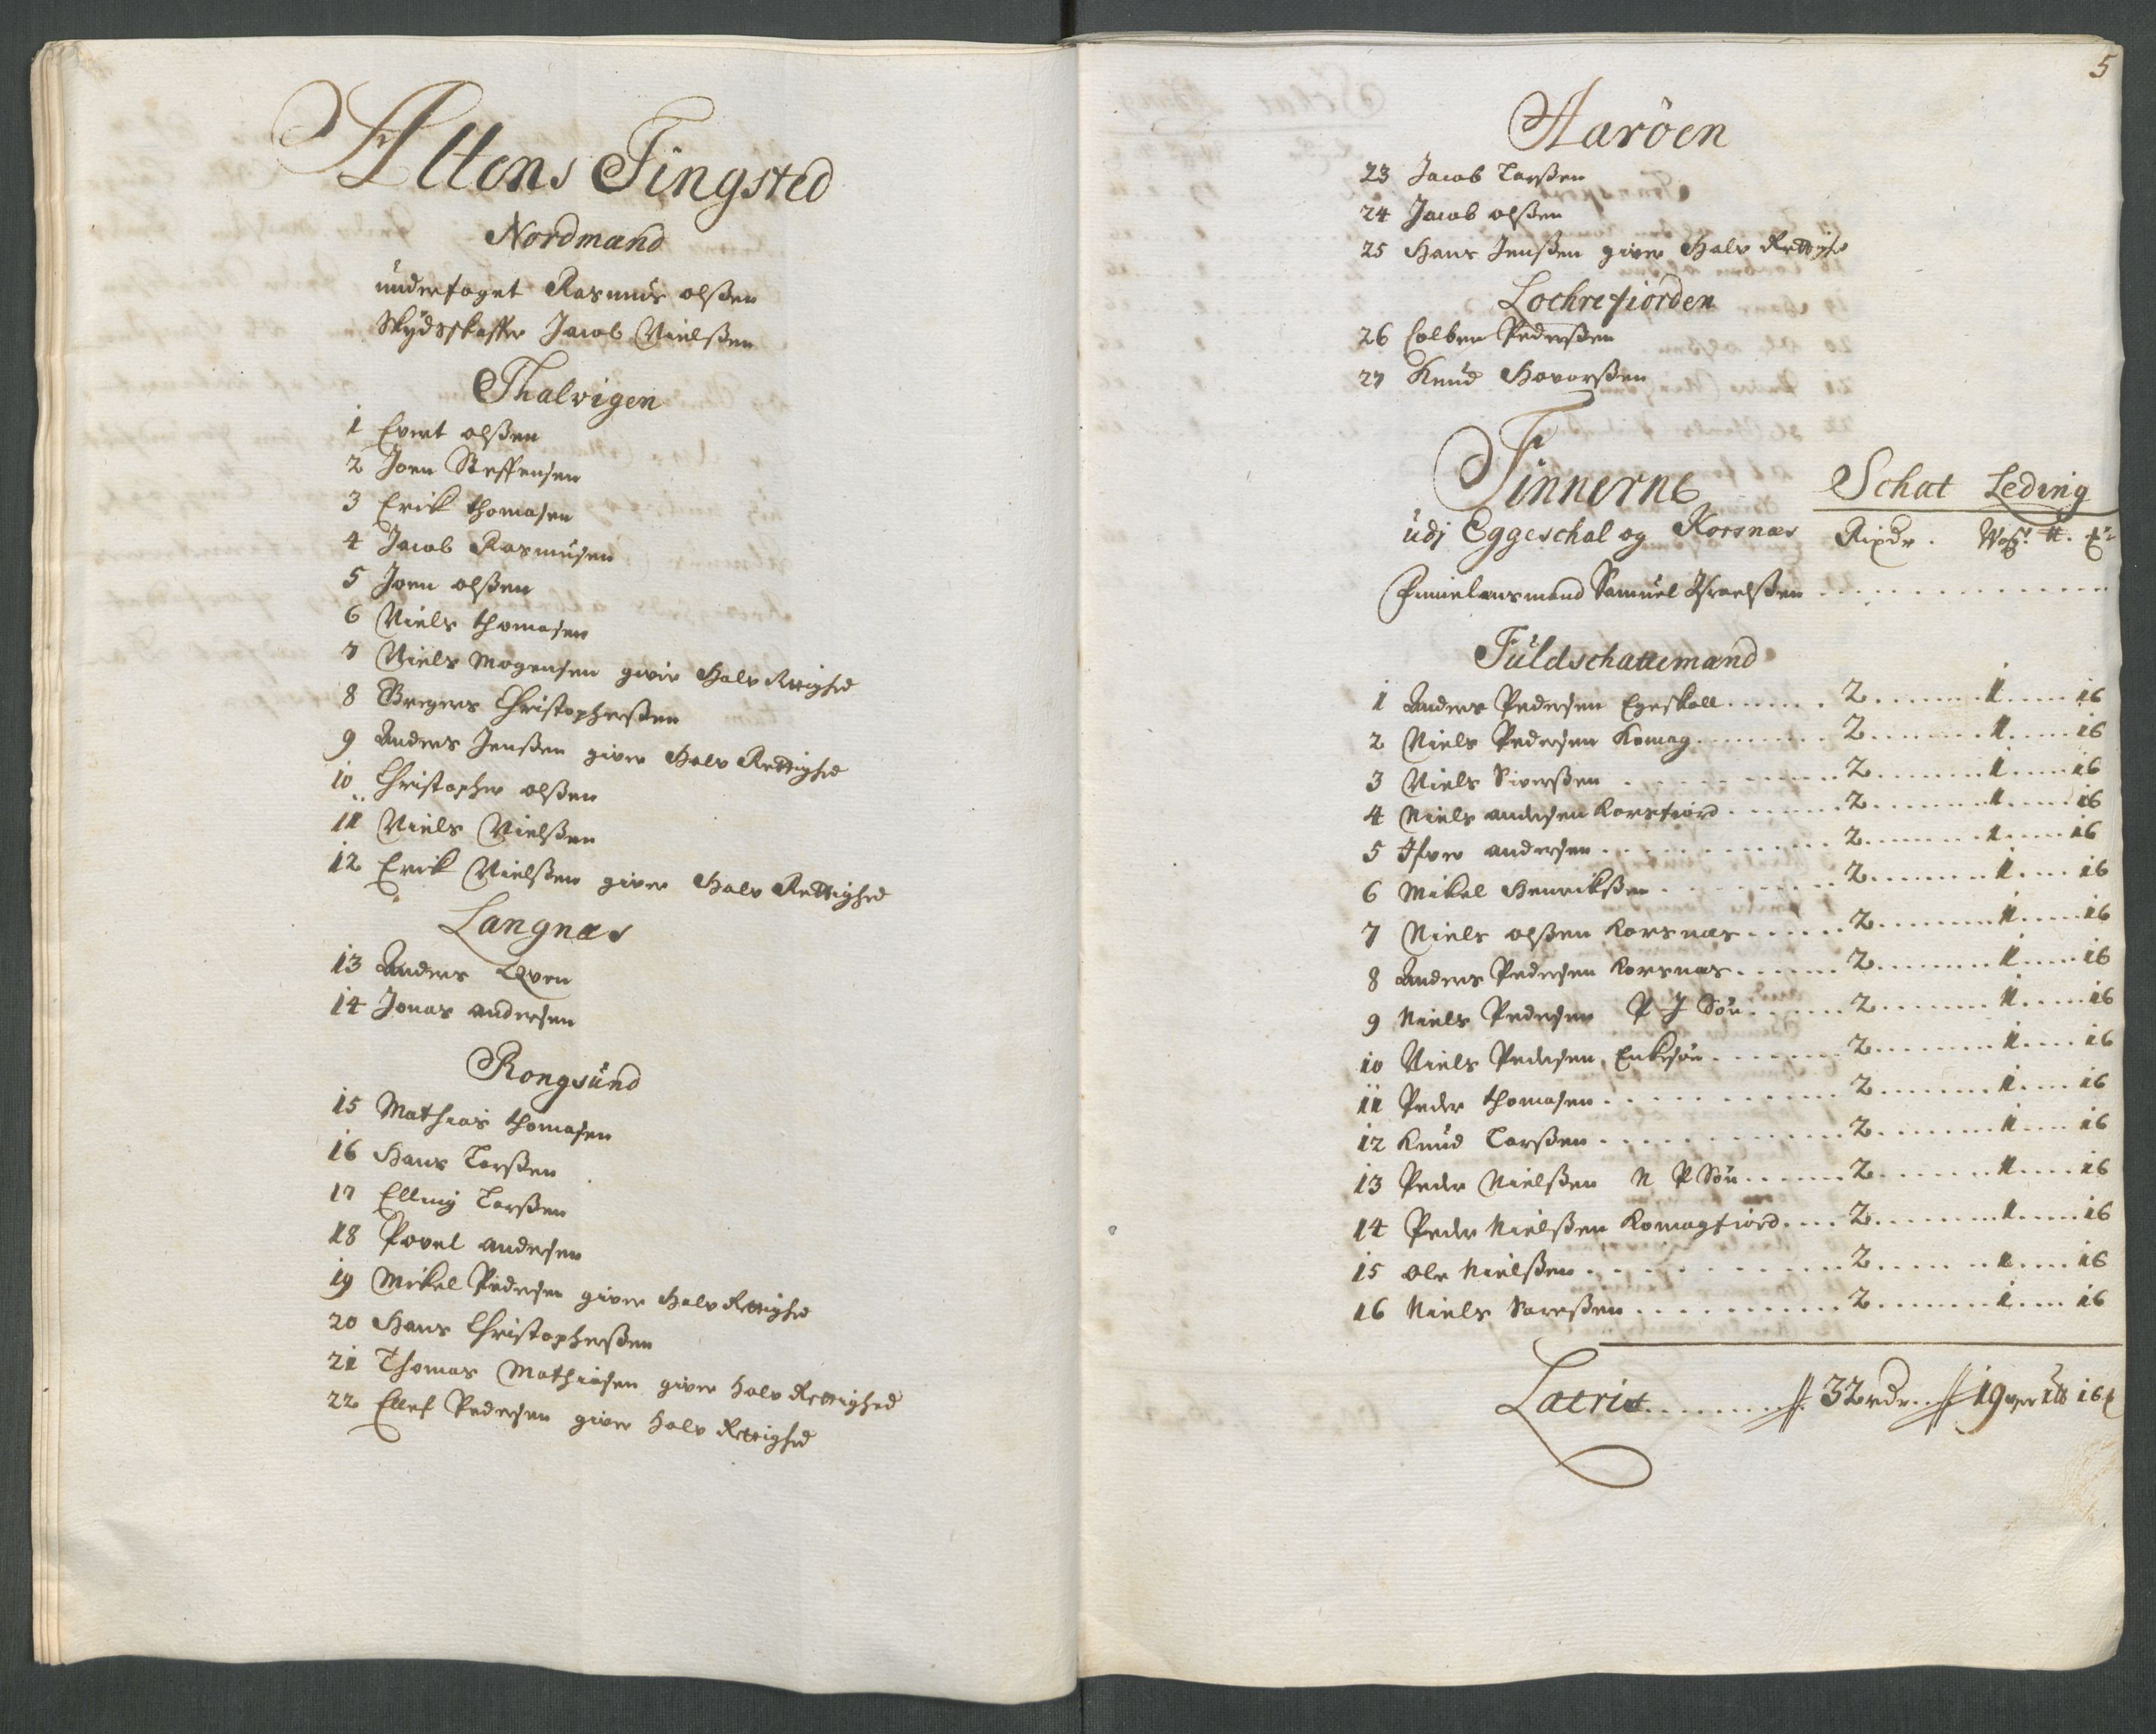 Altens Tingsted
Nordmænd
underfoget Rasmus olßen
Skydsskaffer Jacob Nielßen
Thalvigen
1 Evert olßen
2 Joen Steffensen
3 Erik thomasen
4 Jacob Rasmusen
5 Joen olßen
6 Niels thomasen
7 Niels Mogensen giver Halv Rettighed
8 Gregers Christopherßen
9 Anders Jenßen giver Halv Rettighed
10 Christopher olßen
11 Niels Nielßen
12 Erik Nielßen giver Halv Rettighed
Langnæs
13 Anders Qven
14 Jonas andersen
Rongsund
15 Mathias thomasen
16 Hans Larßen
17 Elling Larßen
18 Povel andersen
19 Mikel Pedersen giver Halv Rettighed
20 Hans Christopherßen
21 Thomas Mathiasen giver halv Rettighed
22 Ellef Pedersen giver halv Rettighed
5
Aaröen
23 Jacob Larßen
24 Jacob olßen
25 Hans Jenßen giver Halv Rettighed
Lochrefiorden
26 Colben Pederßen
27 Knud Havorßen
Finnerne Schat Leding
udj Eggeschal og Korsnæs Rixdr. Woger ℔.
Finnelensmand Samuel Israelßen
Fuldschattemænd
1 Anders Pedersen Egeskall . . . . . . 2 . . . . . . . 1 . . . . . 16
2 Niels Pedersen Komag . . . . . . 2 . . . . . . . 1 . . . . . 16
3 Niels Siverßen . . . . . . 2 . . . . . . . 1 . . . . . 16
4 Niels andersen Korsfiord . . . . . . 2 . . . . . . . 1 . . . . . 16
5 Ifver andersen . . . . . . 2 . . . . . . . 1 . . . . . 16
6 Mikel Henrikßen . . . . . . 2 . . . . . . . 1 . . . . . 16
7 Niels olßen Korsnæs . . . . . . 2 . . . . . . . 1 . . . . . 16
8 Anders Pedersen Korsnæs . . . . . . 2 . . . . . . . 1 . . . . . 16
9 Niels Pedersen P J Sön . . . . . . 2 . . . . . . . 1 . . . . . 16
10 Niels Pedersen Enkesön . . . . . . 2 . . . . . . . 1 . . . . . 16
11 Peder thomasen . . . . . . 2 . . . . . . . 1 . . . . . 16
12 Knud Larßen . . . . . . 2 . . . . . . . 1 . . . . . 16
13 Peder Nielßen N P Sön . . . . . . 2 . . . . . . . 1 . . . . . 16
14 Peder Nielßen Komagfiord . . . . 2 . . . . . . . 1 . . . . . 16
15 Ole Nielßen . . . . . . 2 . . . . . . . 1 . . . . . 16
16 Niels Sareßen . . . . . . 2 . . . . . . . 1 . . . . . 16
Lateris . . . . . . // 32 rdr. // 19 16